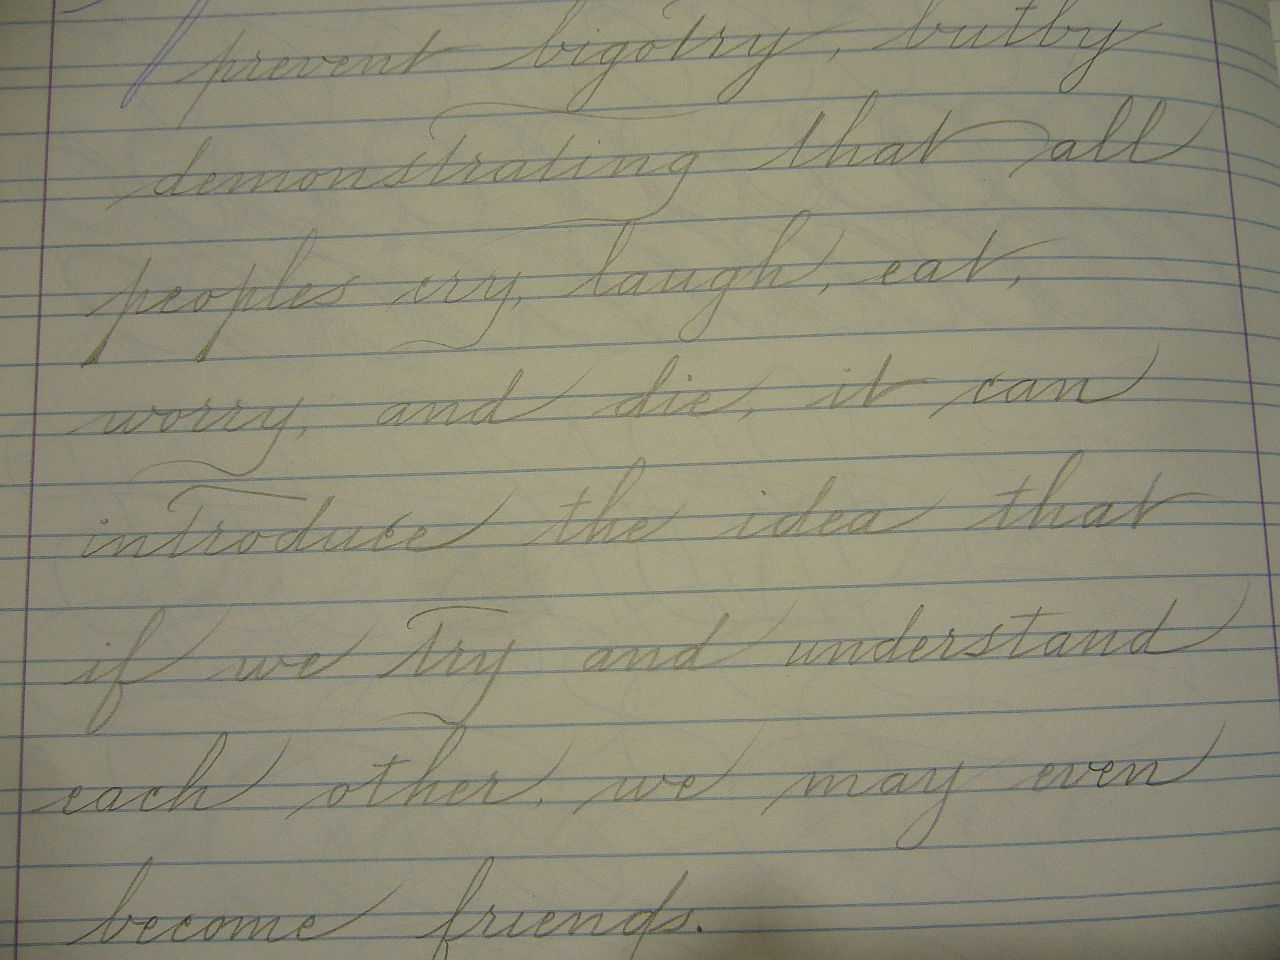 prevent bigotry, but by
demonstrating that all
peoples cry, laugh, eat,
worry, and die, it can
introduce the idea that
if we try and understand
each other, we may even
become friends.